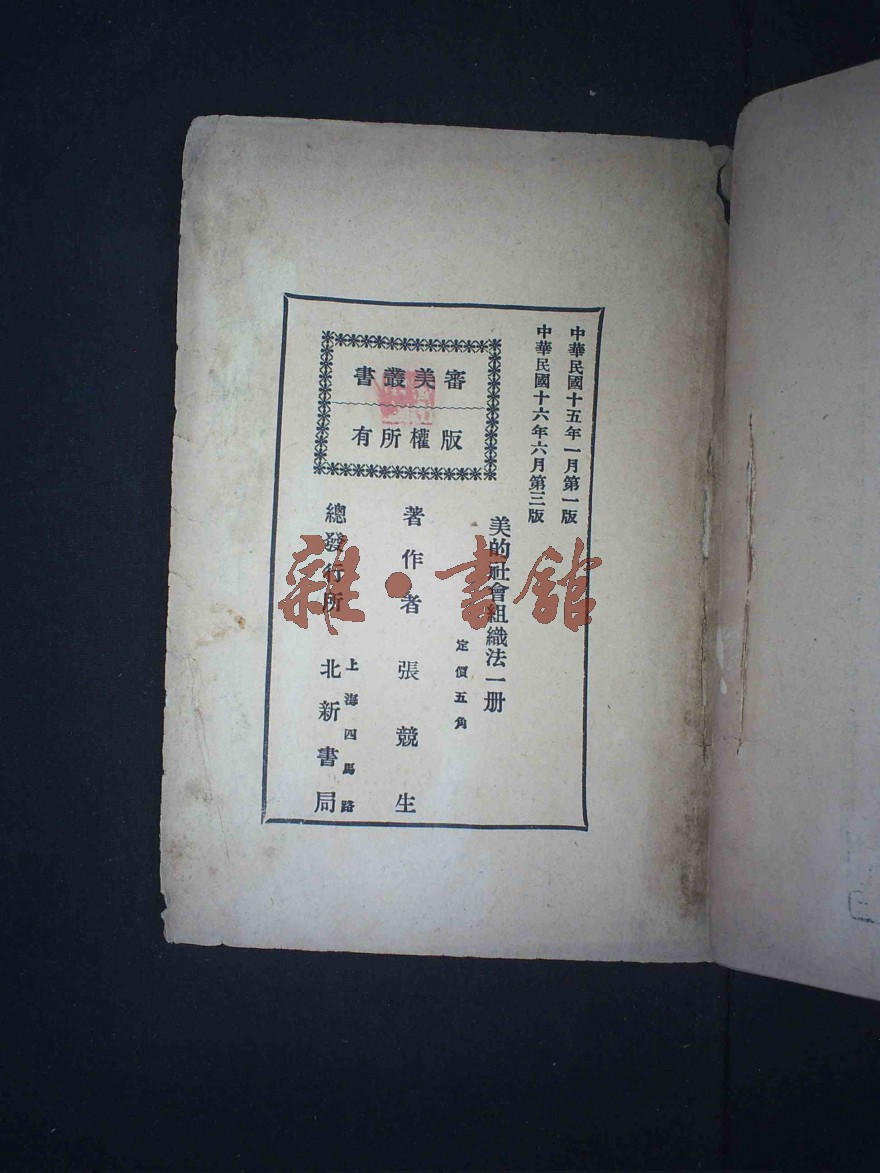 中華民國十五年一月第一版
中華民國十六年六月第三版
審美叢書
版權所有
美的社會組織法一册
定價五角
著作者 張競生
總發行所 上海四馬路 北新書局
雜·書館